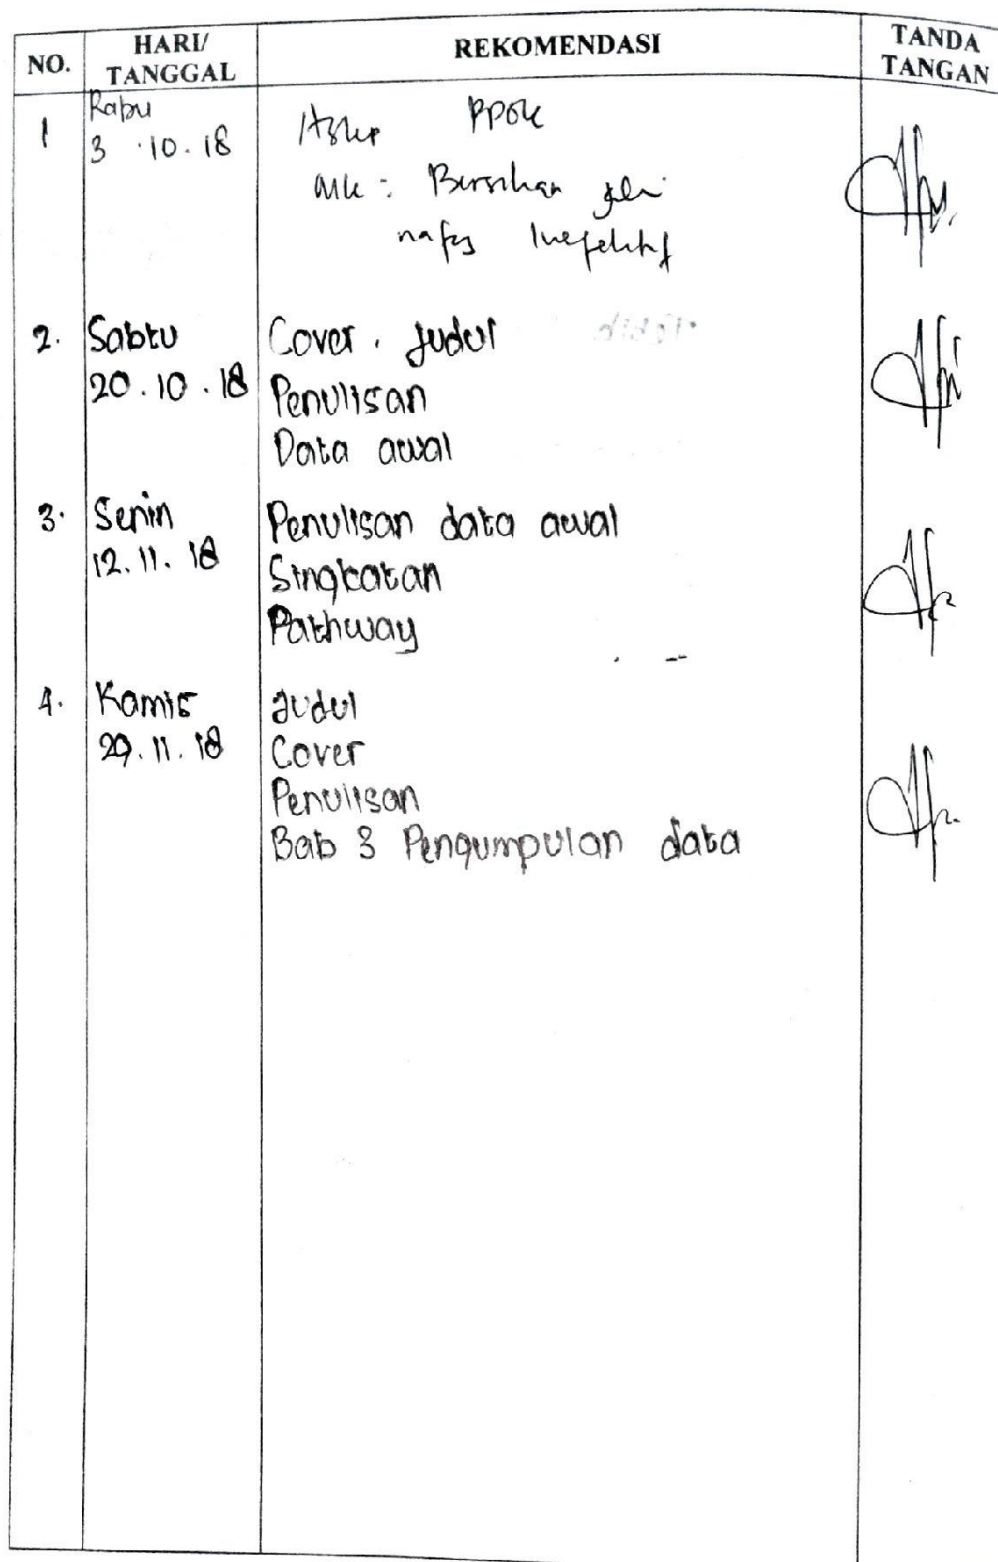 NO.
HARI/
TANGGAL
REKOMENDASI
TANDA
TANGAN
1
Rabu
3 .10.18
Askep PPOK
MK : Bersihan jln
nafas Inefektif
2.
Sabtu
20.10.18
Cover. Judul
Penulisan
Data awal
3.
Senin
12.11.18
Penulisan data awal
Singkatan
Pathway
4.
Kamis
29.11.18
Judul
Cover
Penulisan
Bab 3 Pengumpulan data